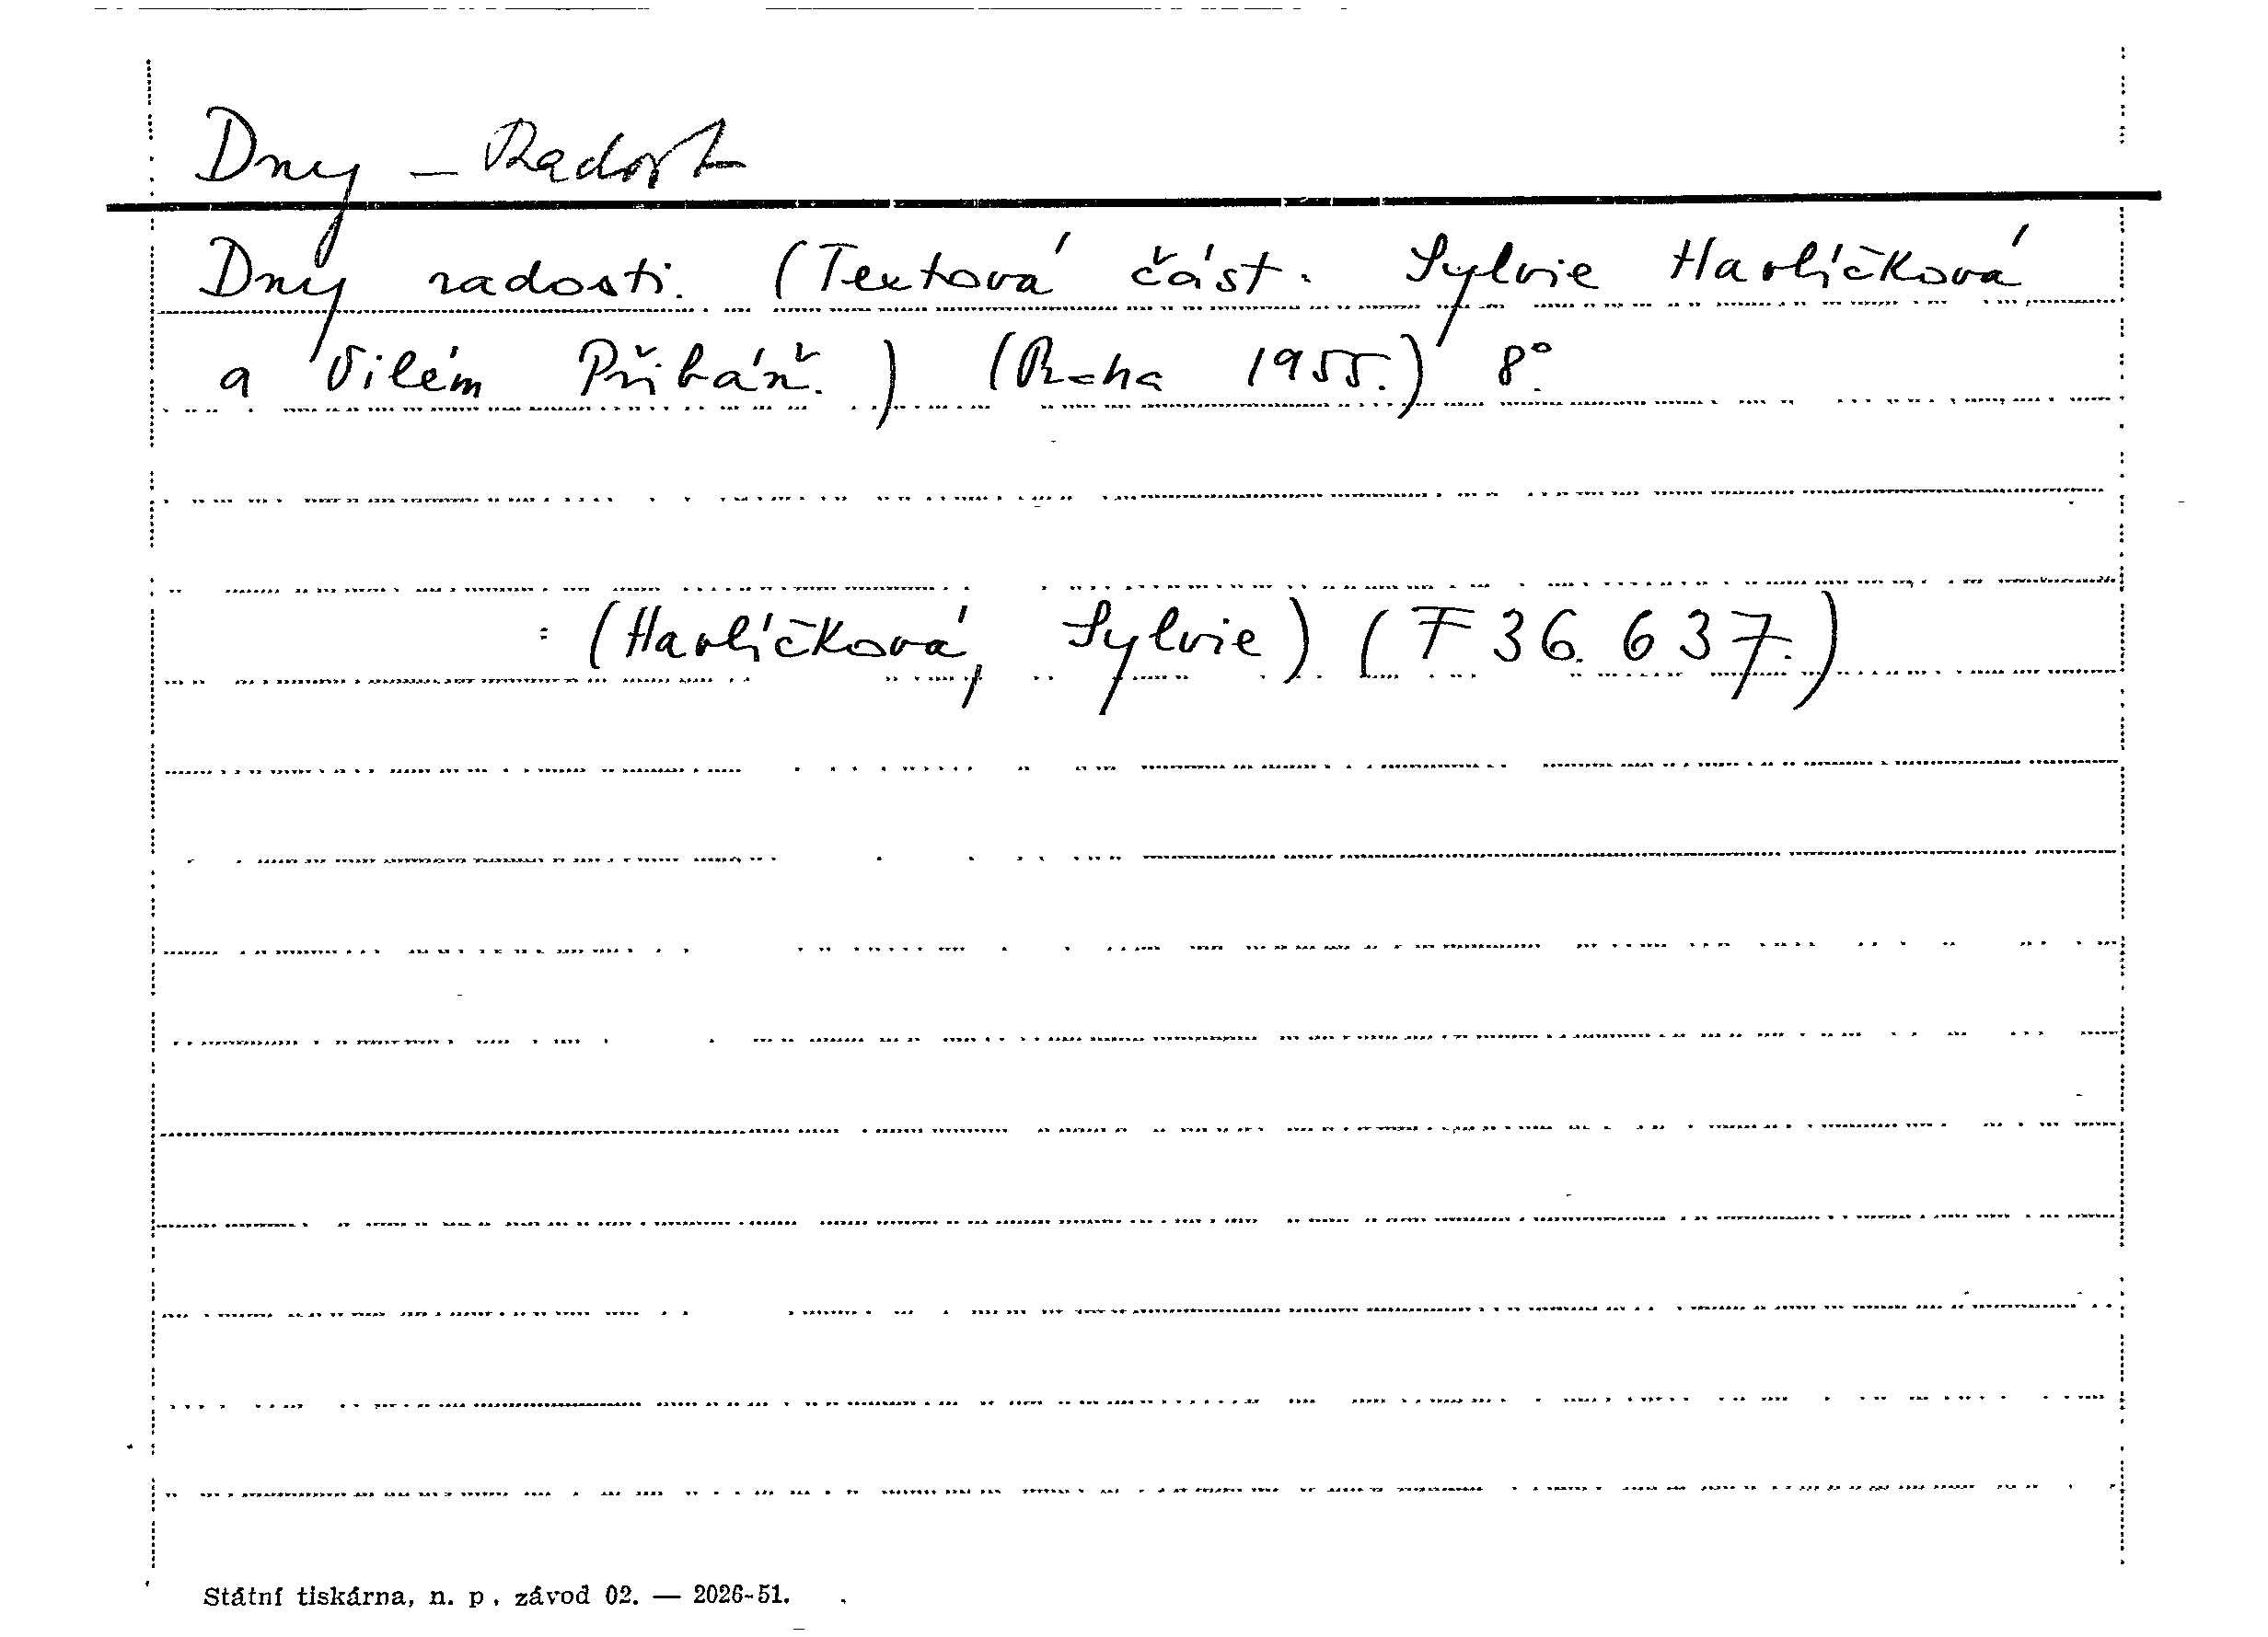 Dny – Radost
Dny radosti. (Textová část. Sylvie Havlíčková
a Vilém Přibáň.) (Praha 1955.) 8°.
: (Havlíčková, Sylvie) (F 36.637.)
Státní tiskárna, n. p. závod 02. — 2026-51.